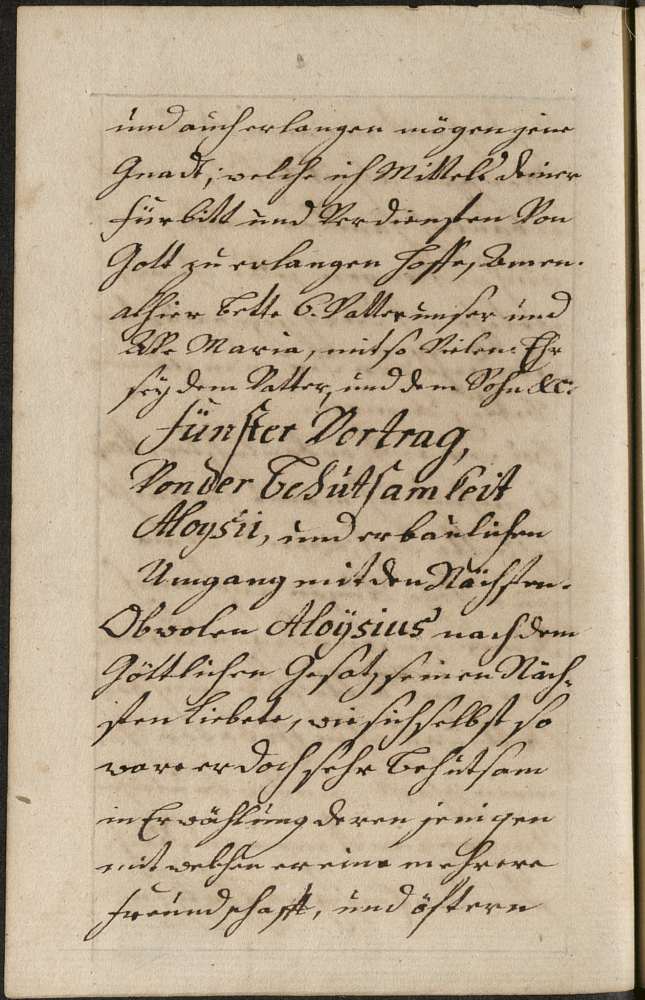 und auch erlangen mögen jene
Gnade, welche ich Mittels deiner
Fürbitt und Verdiensten Von
Gott zu erlangen hoffe, Amen.
alhier bette 6. Vatter unser und
Ave Maria, mit so Vielen: Ehr
sey dem Vatter, und dem Sohn &c:
Fünfter Vortrag,
Von der behutsamkeit
Aloysii, und erbaulichen
Umgang mit den Nächsten.
Obwolen Aloÿsius nach dem
Göttlichen Gesatz seinen Näch-
sten Liebete, wie sich selbst so
ware er doch sehr behutsam
in Erwählung deren jenigen
mit welchen er eine mehrere
Freundschafft, und öftern